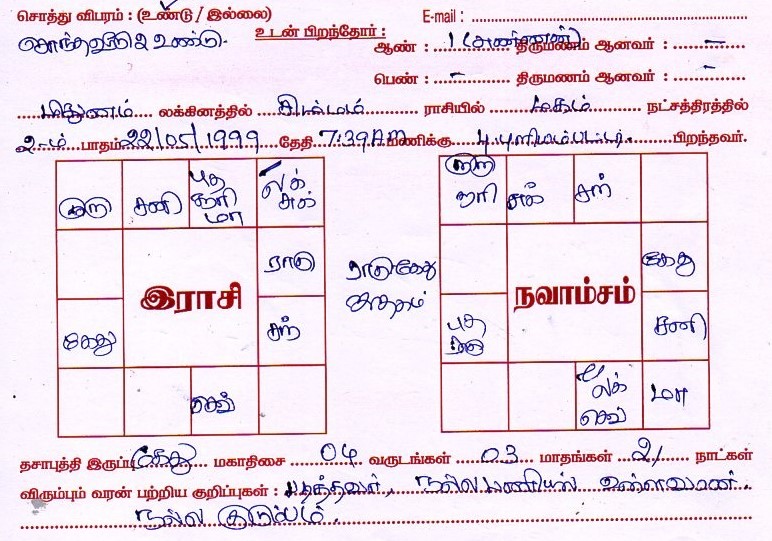 சொத்து விபரம் : (உண்டு / இல்லை) E-mail :
சொந்த வீடு 2 உண்டு. உடன் பிறந்தோர் : ஆண் : 1 (அண்ணன்) திருமணம் ஆனவர் : –
பெண் : – திருமணம் ஆனவர் : –
மிதுனம் லக்கினத்தில் சிம்மம் ராசியில் மகம் நட்சத்திரத்தில்
2-ம் பாதம் 22/05/1999 தேதி 7:39AM மணிக்கு பிறந்தவர்.
குரு சனி புத சூரி மா லக் சுக்
ராகு
கேது சந்
செவ்
இராசி
ராகு கேது
குரு சூரி சுக் சந்
கேது
புத ராகு சனி
லக் செவ் மா
நவாம்சம்
தசாபுத்தி இருப்பு கேது மகாதிசை 04 வருடங்கள் 03 மாதங்கள் 21 நாட்கள்
விரும்பும் வரன் பற்றிய குறிப்புகள் : படித்தவர், நல்ல பணியில் உள்ளவரான்
நல்ல குடும்பம்.